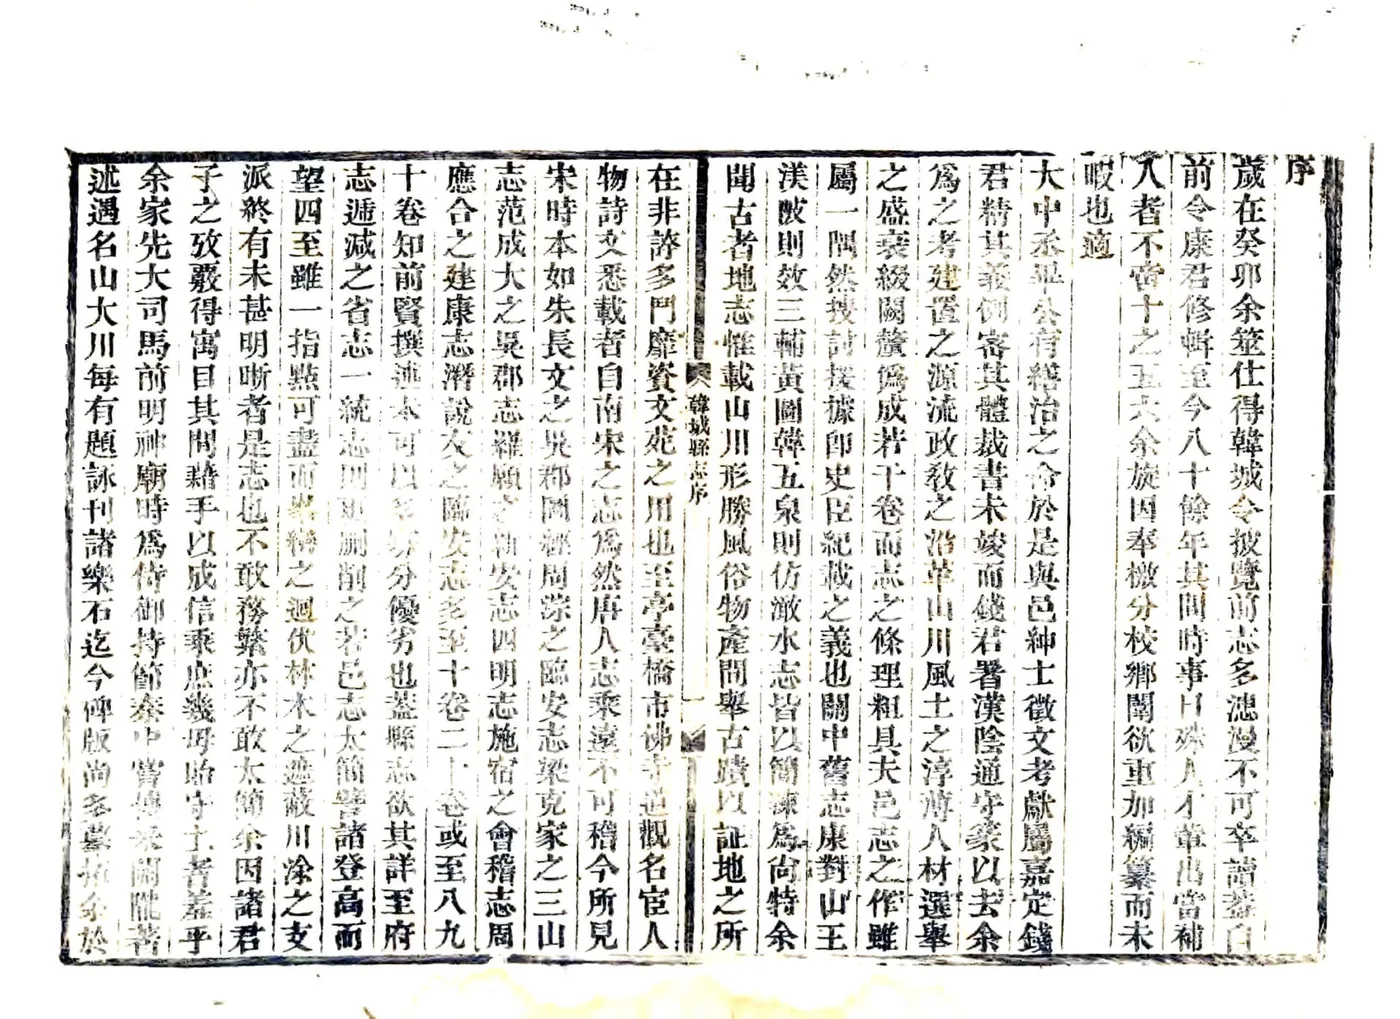 序
歲在癸卯余筮仕得韓城令披覽前志多漶漫不可卒讀蓋自
前令康君修輯至今八十餘年其間時事日殊人才輩出當補
入者不啻十之五六余旋因奉檄分校鄉闈欲重加編纂而未
暇也適
大中丞畢公有繕治之令於是與邑紳士徵文考獻屬嘉定錢
君精其義例審其體裁書未竣而錢君署漢陰通守篆以去余
為之考建置之源流政教之沿革山川風土之淳薄人材選舉
之盛衰綴闕釐偽成若干卷而志之條理粗具夫邑志之作雖
屬一隅然搜討援據卽史臣紀載之義也關中舊志康對山王
渼陂則效三輔黃圖韓五泉則仿澉水志皆以簡諫為尙特余
聞古者地志惟載山川形勝風俗物產間舉古蹟以証地之所
韓城縣志序
一
在非誇多鬥靡資文苑之用也至亭臺橋市佛寺道觀名宦人
物詩文悉載者自南宋之志為然唐人志乘遠不可稽今所見
宋時本如朱長文之吳郡圖經周淙之臨安志梁克家之三山
志范成大之吳郡志羅願之新安志四明志施宿之會稽志周
應合之建康志潛說友之臨安志多至十卷二十卷或至八九
十卷知前賢撰述本可以多分優劣也蓋縣志欲其詳至府
志遞減之省志一統志則更刪削之若邑志太簡譬諸登高而
望四至雖一指點可盡而巒嶂之迴伏林木之遮蔽川涂之支
派終有未甚明晰者是志也不敢務繁亦不敢太簡余因諸君
子之攷覈得寓目其間藉手以成信乘庶幾毋貽守土者羞乎
余家先大司馬前明神廟時為侍御持節秦中嘗歷關隴著
述遇名山大川每有題詠刊諸樂石迄今碑版尙多摹拓余於